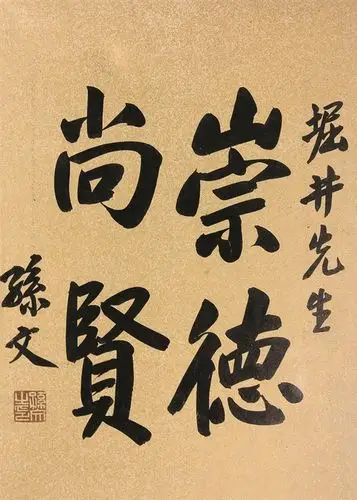 堀井先生
崇德
尚賢
孫文
孫文之印